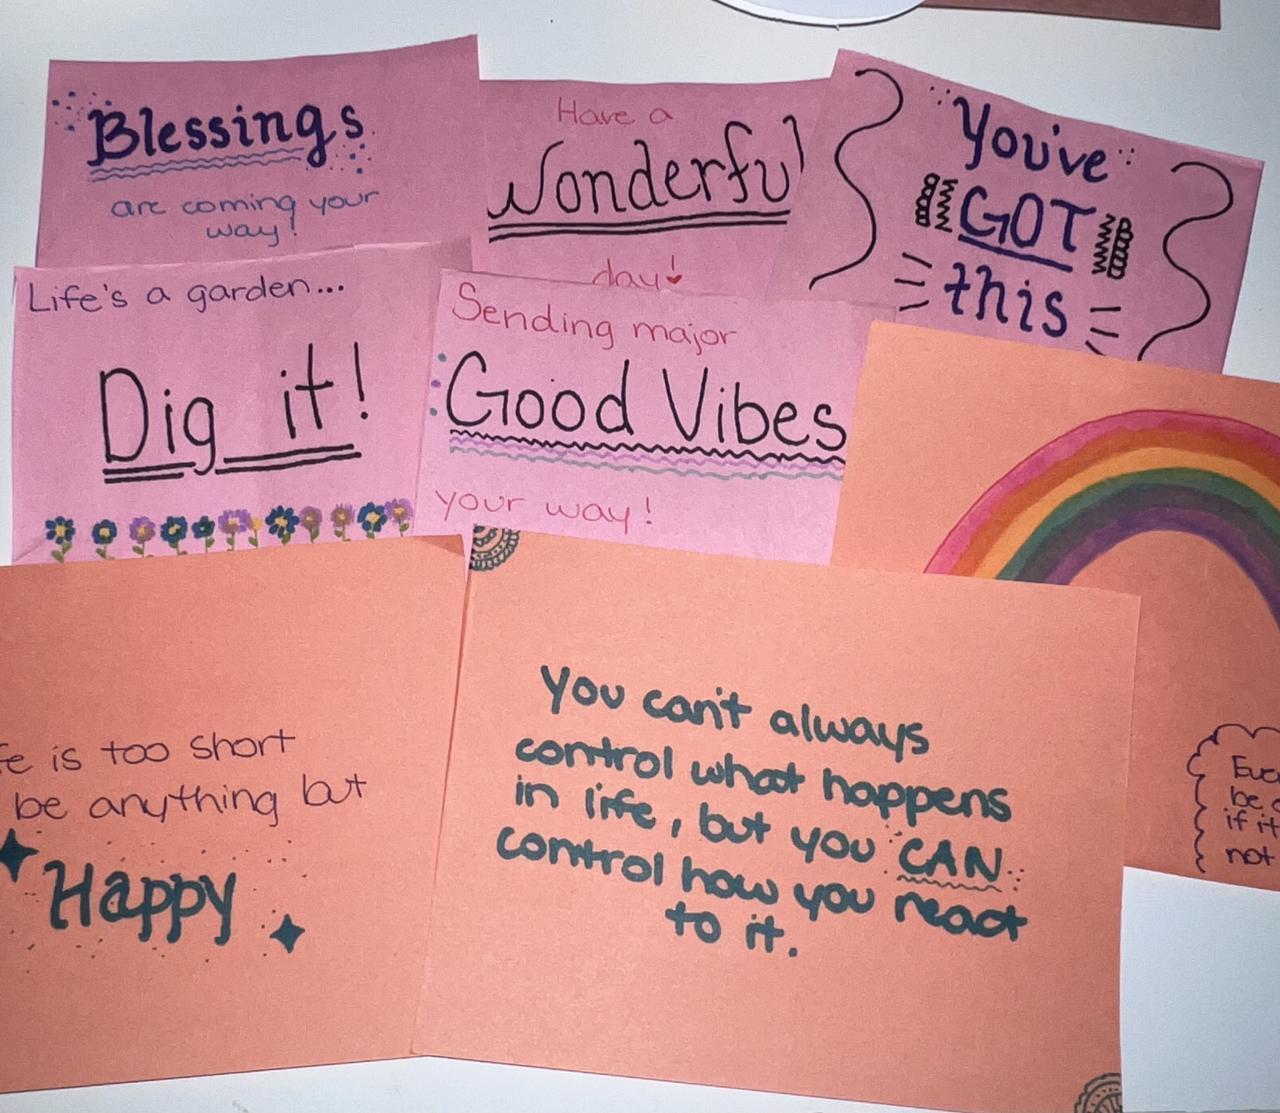 Blessings
are coming your
way!
Have a
Wonderful
day!
You've
GOT
this
Life's a garden...
Dig it!
Sending major
Good Vibes
your way!
is too short
be anything but
Happy
You can't always
control what happens
in life, but you CAN
control how you react
to it.
be
if it
not